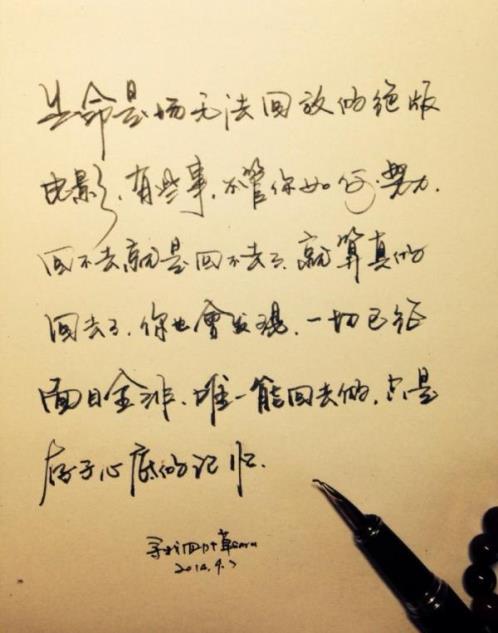 生命是场无法回放的绝版
电影，有些事，不管你如何努力，
回不去就是回不去了，就算真的
回去了，你也會发现，一切已经
面目全非，唯一能回去的，只是
存于心底的记忆。
2014.9.7